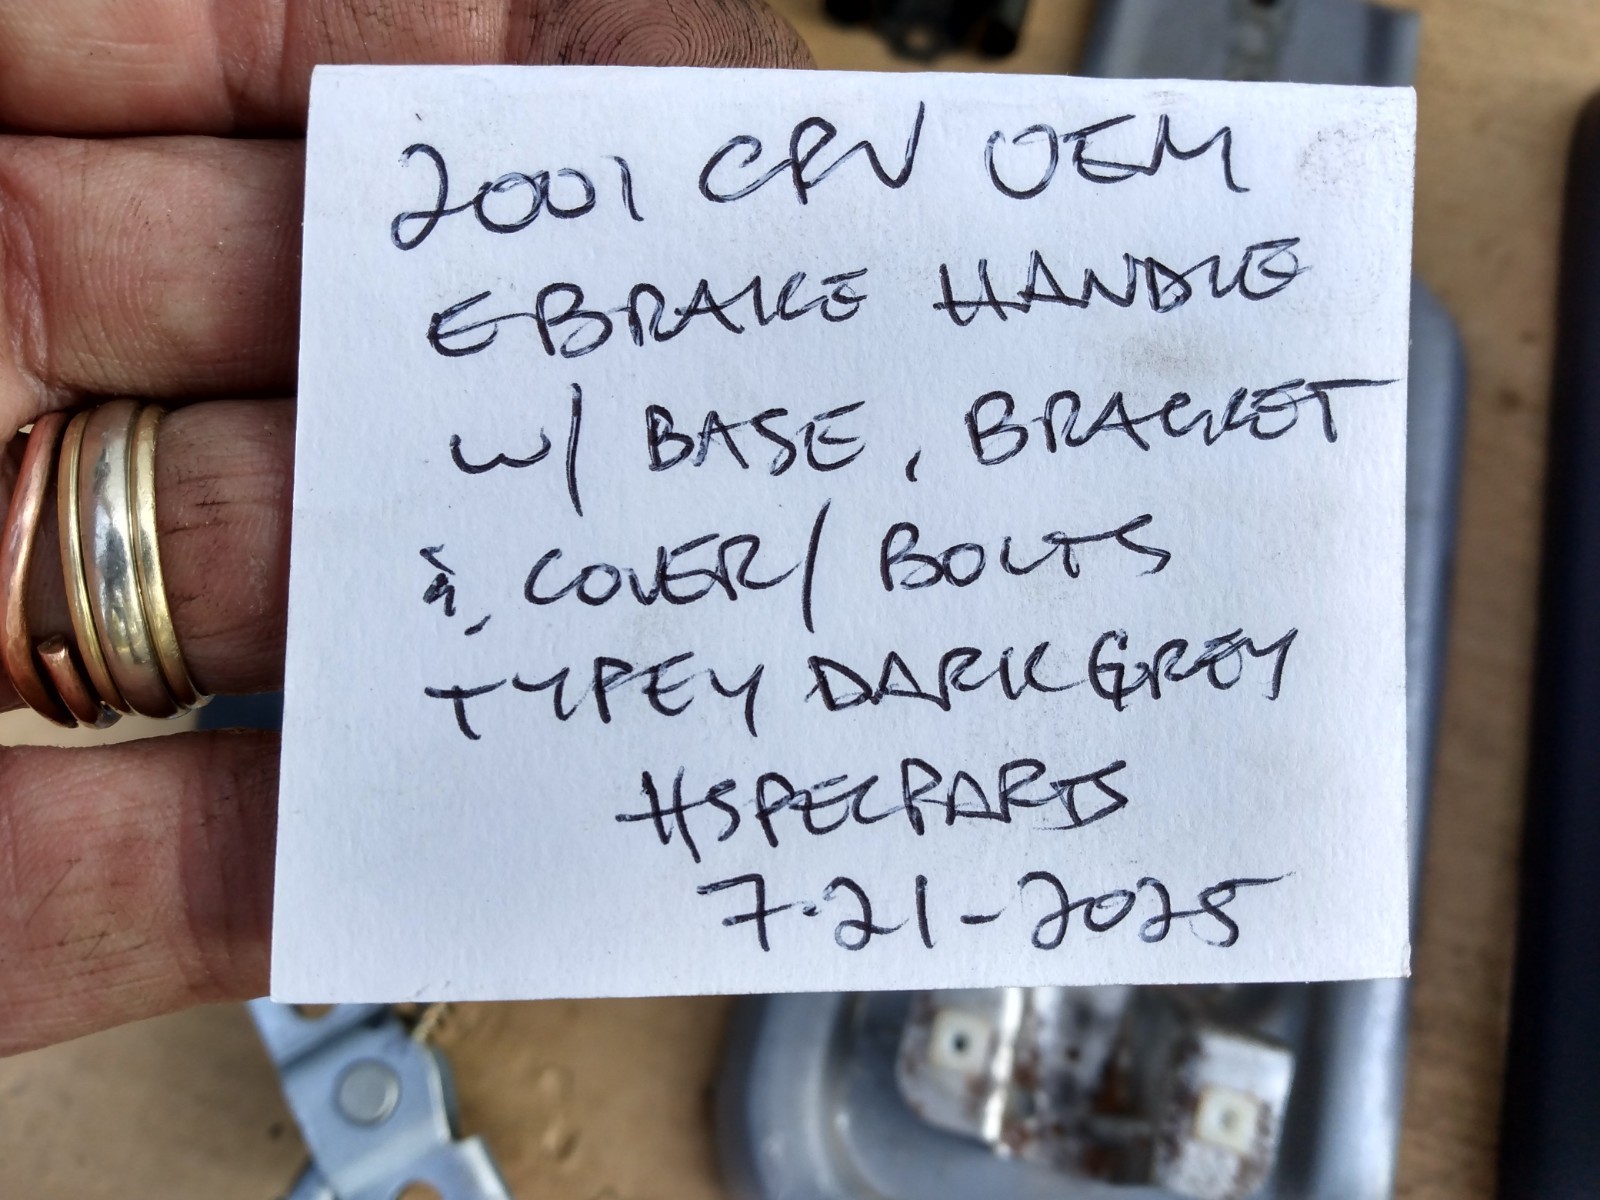 2001 CRV OEM
EBRAKE HANDLE
W/ BASE, BRACKET
& COVER/ BOLTS
TYPEY DARK GREY
HSPECPARTS
7.21-2025